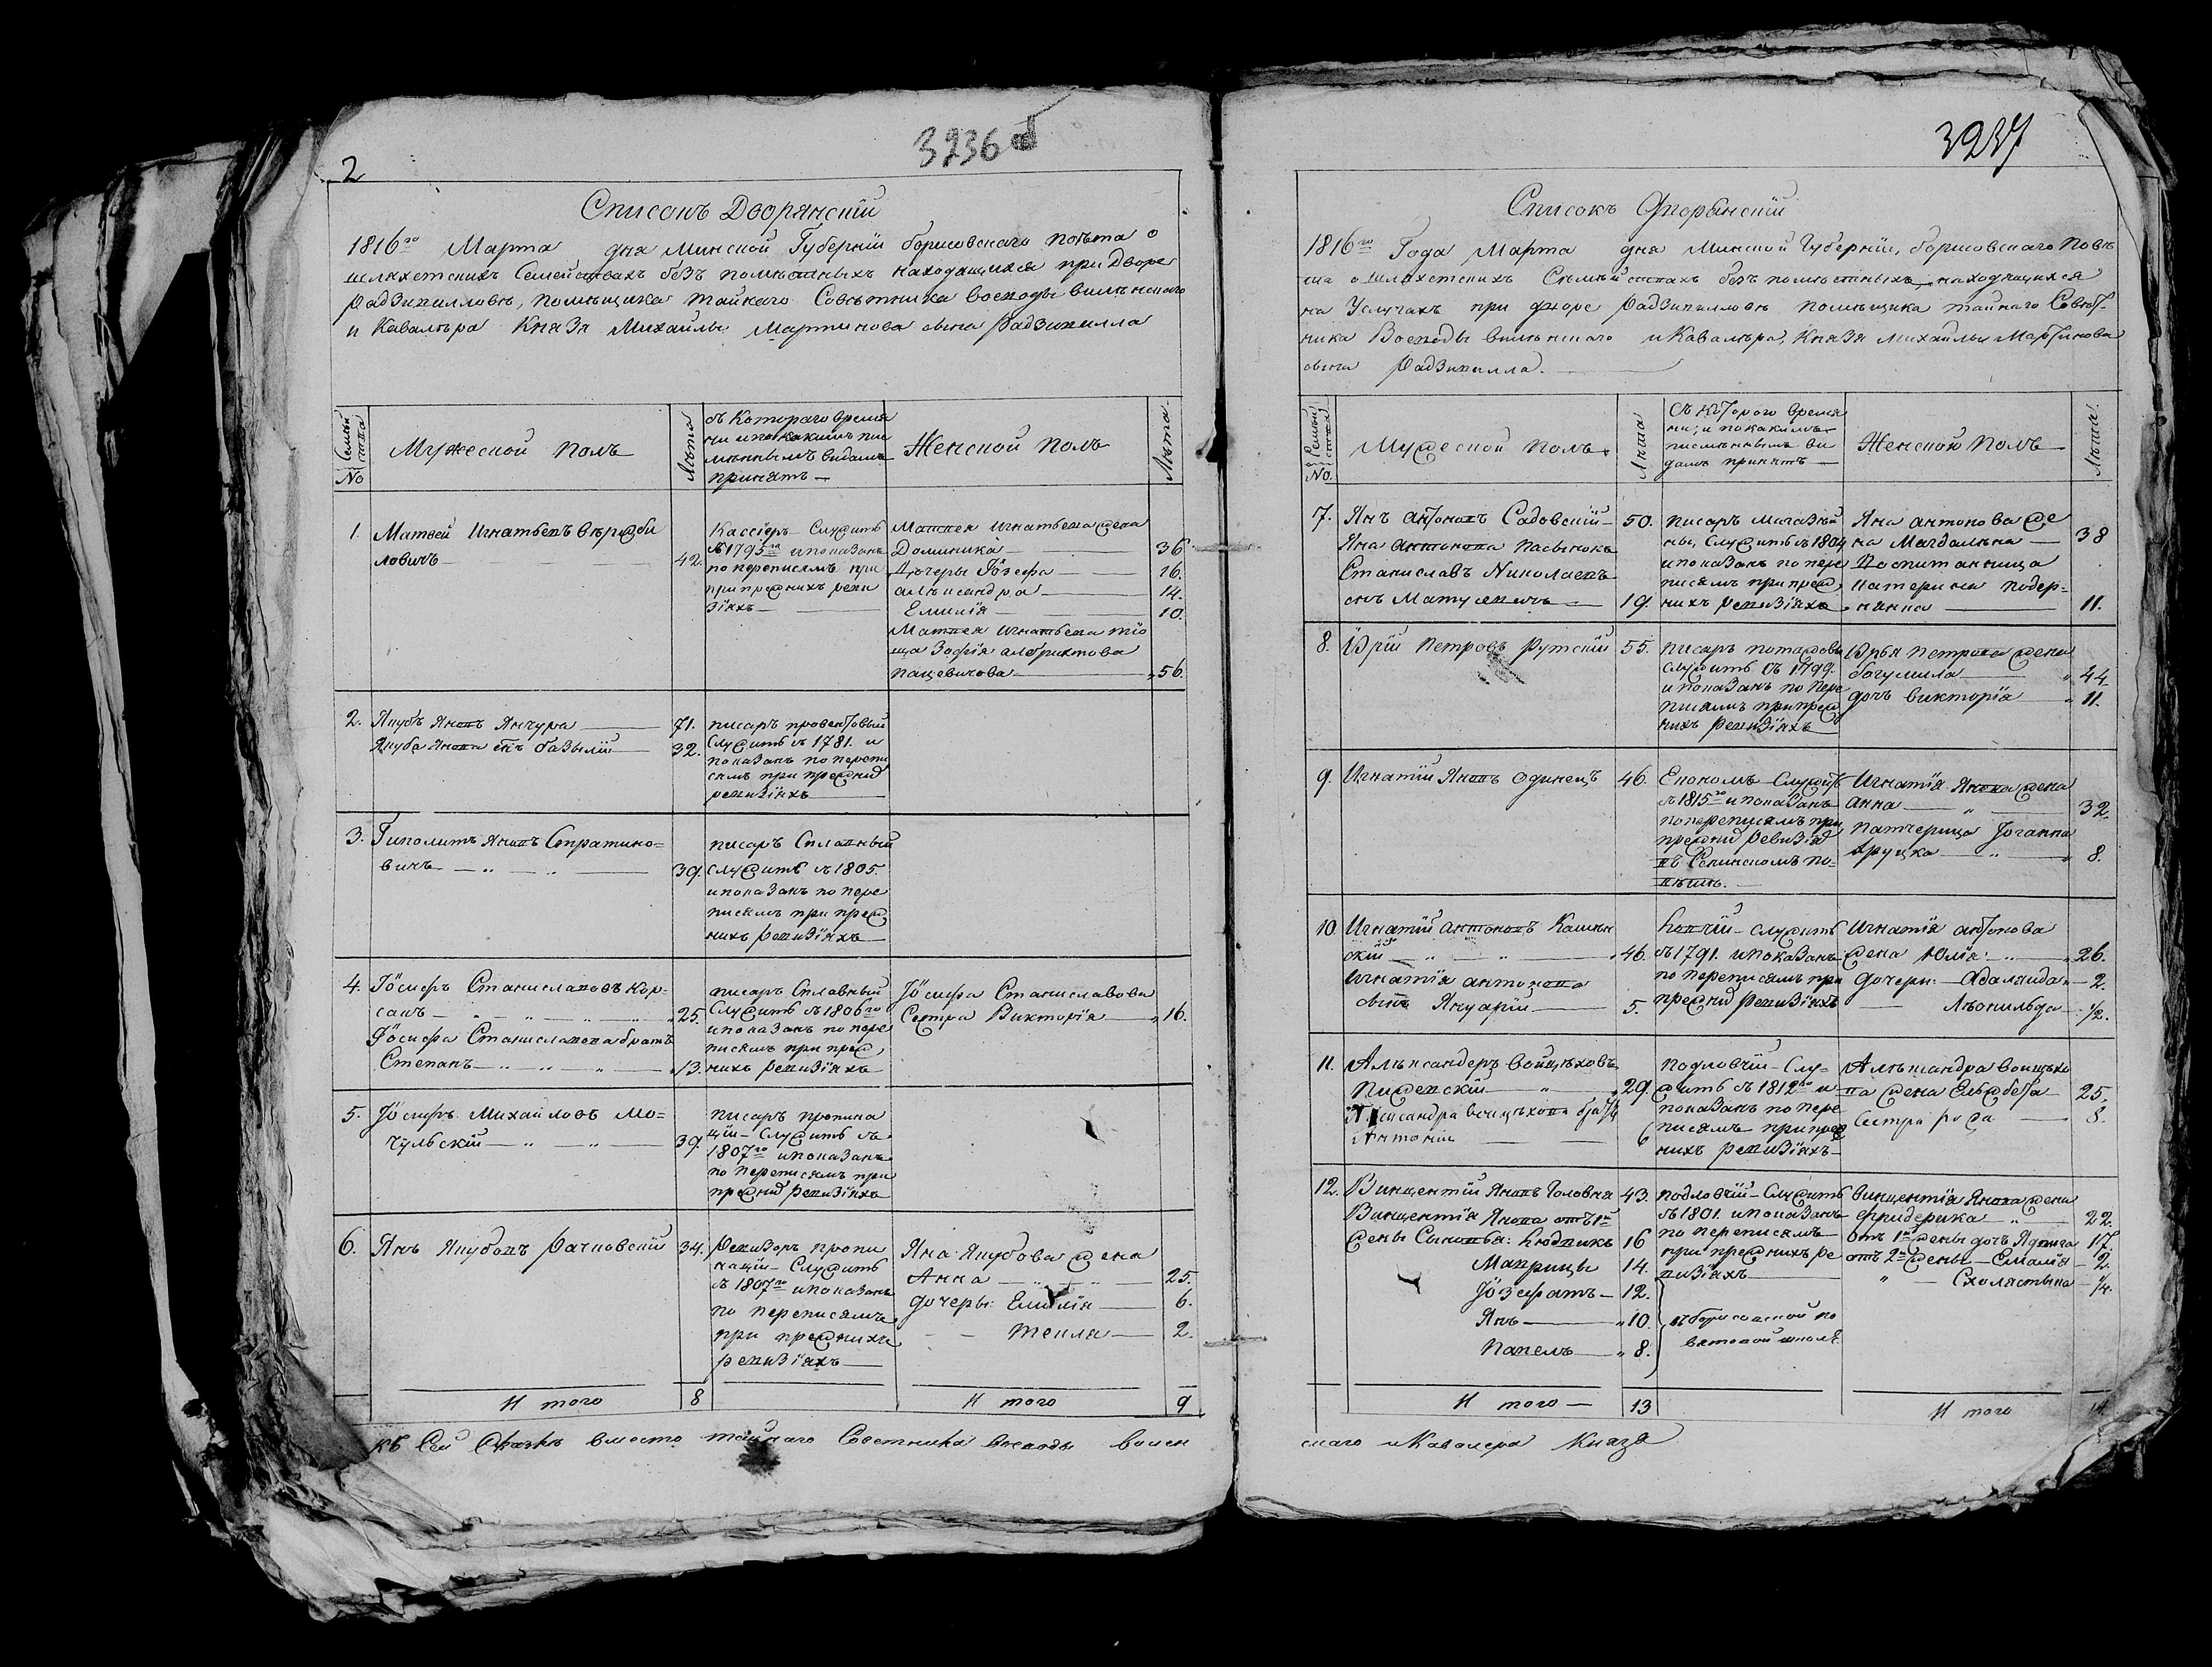 2
3236 об
Списокъ Дворянскій
1816го Марта дня Минской Губерніи борисовскаго повѣта о
шляхетскихъ Семействахъ безъ помѣстныхъ находящихся при Дворе
Радзивилловѣ, помѣщика тайнаго Совѣтника воеводы виленскаго
и Кавалѣра Князя Михайлы Мартинова сына Радзивилла
No Семьи
Мужеской полъ
Лѣта
съ Котораго време
ни и по какимъ пис
мѣннымъ видамъ
принятъ
Женской полъ
Лѣта
1. Матвей Игнатьевъ вѣржби
ловичъ 42.
Кассіеръ Служитъ
съ 1795го и показанъ
по переписямъ при
прежнихъ реви
зіяхъ
Матвея Игнатьева жена
Доминика 36
Дочеры Іозефа 16.
алѣксандра 14.
Емилія 10.
Матвея Игнатьева тіо
ща Зофія албрихтова
пацевичова 56.
2. Якубъ Яновъ Янчура 71.
Якуба Янова сынъ базылій 32.
писаръ провентовый
Служитъ съ 1781. и
показанъ по перепи
сямъ при прежних
ревизіяхъ
3. Гиполитъ Яновъ Стратино=
вичъ 39.
писаръ Сплавный
служитъ съ 1805.
и показанъ по пере
писямъ при преж
нихъ ревизіяхъ
4. Іосифъ Станиславовъ Кор=
сакъ 25.
Іосифа Станиславова братъ
Степанъ 13.
писаръ Сплавный
Служитъ съ 1806го
и показанъ по пере
писямъ при преж
нихъ ревизіяхъ
Іосифа Станиславова
Сестра Викторія 16.
5. Іосифъ Михайловъ Мо=
чульскій 39.
писаръ пропина
ціи Служитъ съ
1807го и показанъ
по переписямъ при
прежних ревизіяхъ
6. Янъ Якубовъ Рачковскій 34.
Ревизоръ пропи
націи Служитъ
съ 1807го и показанъ
по переписямъ
при прежнихъ
ревизіяхъ
Яна Якубова жена
Анна 25.
дочеры Емилія 6.
Текля 2.
И того 8
И того 9
къ Сей Сказкѣ вместо тайнаго Советника воеводы вилен
3237
Списокъ Дворянскій
1816го Года Марта дня Минской Губерніи, борисовскаго повѣ
та о шляхетскихъ Сѣмействахъ безъ помѣстныхъ находящихся
на Услугахъ при дворе Радзивилловѣ помѣщика тайнаго Совѣт=
ника Воеводы виленскаго и Кавалѣра, Князя михайлы Мартинова
сына Радзивилла.
No. Семьи
Мужеской полъ
Лѣта
Съ котораго време
ни, и по какимъ
писмѣннымъ ви
дамъ принятъ
Женской полъ
Лѣта.
7. Янъ антоновъ Садовскій 50.
Яна антонова пасынокъ
Станиславъ Николаевъ
сынъ Матусевичъ 19.
писаръ магазей
ны, Служитъ съ 1804
и показанъ по пере
писямъ при преж
нихъ ревизіяхъ
Яна антонова же
на Магдалѣна 38
Воспитанница
Катерина подер=
нянка 11.
8. Юрій Петровъ Рутскій 55.
писаръ поташовы
служитъ съ 1799.
и показанъ по пере
писямъ при преж
нихъ ревизіяхъ
Юрья петрова жена
богумила 44
дочъ викторія 11.
9. Игнатій Яновъ Одинецъ 46.
Економъ Служитъ
съ 1815го и показанъ
по переписямъ при
прежних ревизіях
въ Сенинскомъ по=
вѣтѣ.
Игнатія Янова жена
анна 32.
патчерица Іоганна
друцка 8.
10 Игнатій антоновъ Камин
скій 46.
Игнатія антонова
сынъ Януарій 5.
Копчій служитъ
съ 1791. и показанъ
по переписямъ при
прежних ревизіяхъ
Игнатія антонова
жена Юлія 26.
дочери Адаляида 2.
Лѣокильда 1/2.
11. Алѣксандеръ войцѣховъ
пижевскій 29.
Алѣксандра войцѣхова братъ
антоній 6
Подловчій Слу=
житъ съ 1812го и
показанъ по пере
писямъ при преж
нихъ ревизіяхъ
Алѣксандра войцѣхо
ва жена Ельжбета 25.
Сестра роза 8.
12. Винцентій Яновъ Головня 43.
Винцентія Янова отъ 1й
жены Сыновья: Людвикъ 16
Маврицы 14.
Іозефатъ 12.
Янъ 10.
Павелъ 8.
въ борисовской по
вѣтовой школѣ
подловчій Служитъ
съ 1801. и показанъ
по переписямъ
при прежнихъ ре
визіяхъ
винцентія Янова жена
фридерика 22.
отъ 1й жены дочъ Ядвига 17.
отъ 2й жены Емилія 2.
Схолястыка 1/4.
И того 13
И того 14
скаго и Кавалера Князя